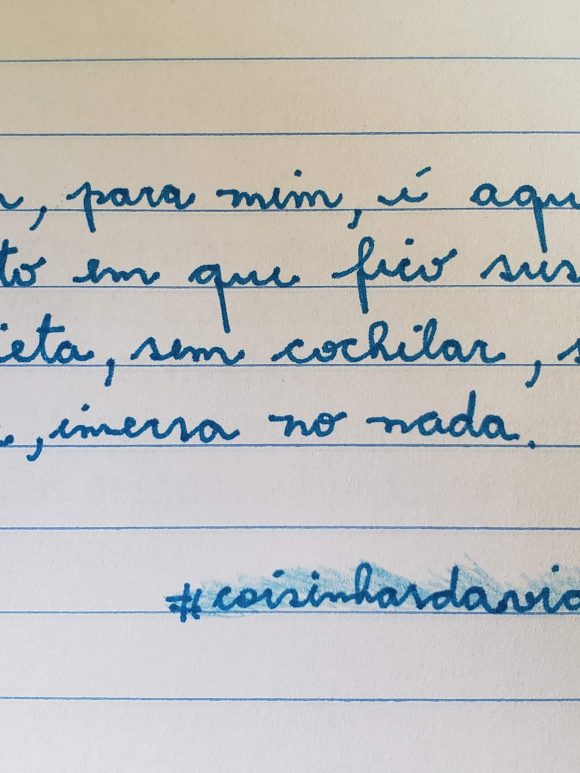 , para mim, é aqu
to em que fico sus
ieta, sem cochilar, s
, imersa no nada.
#coisinhasdavid